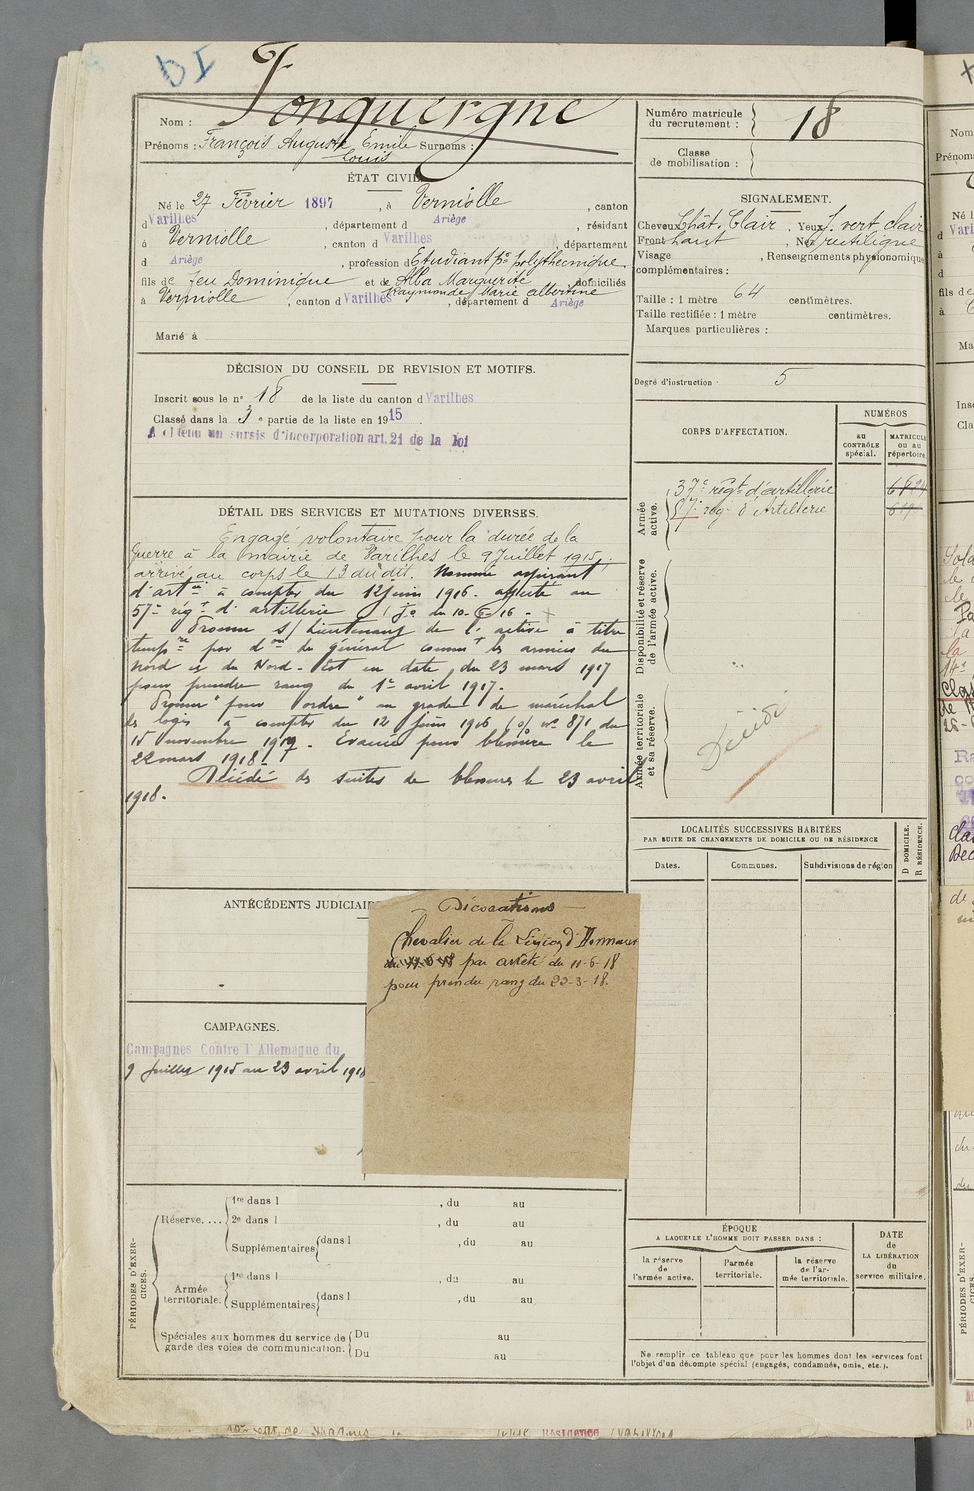 DI
Nom : Fonquergne
Prénoms : François Auguste Emile Surnoms :
Louis
ÉTAT CIVIL
Né le 27 Février 1897, à Verniolle, canton
d Varilhes, département d Ariège, résidant
à Verniolle, canton d Varilhes, département
d Ariège, profession d Etudiant pre polythecnique
fils de feu Dominique et de Alba Marguerite domiciliés
Raymonde Marie Albertine
à Verniolle, canton d Varilhes, département d Ariège
Marié à
DÉCISION DU CONSEIL DE REVISION ET MOTIFS.
Inscrit sous le n° 18 de la liste du canton d Varilhes
Classé dans la 3e partie de la liste en 1915.
A obtenu un sursis d'incorporation art. 21 de la loi
DÉTAIL DES SERVICES ET MUTATIONS DIVERSES.
Engagé volontaire pour la durée de la
guerre à la mairie de Varilhes le 9 Juillet 1915,
arrivé au corps le 13 du dit. Nommé aspirant
d'artie à compter du 12 juin 1916. affecté au
57e régt d'artillerie (Jo du 10-6-16 -
Promu s/ Lieutenant de l'active à titre
tempre par don du général commt les armées du
Nord et du Nord-Est en date du 23 mars 1917
pour prendre rang du 1er avril 1917.
Promu "pour ordre" au grade de maréchal
des logis à compter du 12 juin 1916 (o) n° 871 du
15 novembre 1917. Evacué pour blessure le
22 mars 1918.
Décédé des suites de blessures le 23 avril
1918.
ANTÉCÉDENTS JUDICIAIR
Décorations
Chevalier de la Légion d'Honneur
par arrêté du 11-6-18
pour prendre rang du 22-3-18.
CAMPAGNES.
Campagnes Contre l'Allemagne du
9 Juillet 1915 au 23 avril 1918
PÉRIODES D'EXERCICES.
Réserve....
1re dans l , du au
2e dans l , du au
Supplémentaires dans l , du au
Armée territoriale.
1re dans l , du au
Supplémentaires dans l , du au
Spéciales aux hommes du service de Du au
garde des voies de communication. Du au
Numéro matricule du recrutement : 18
Classe de mobilisation :
SIGNALEMENT.
Cheveux Chât. Clair. Yeux J. vert clair
Front haut, Nez rectiligne
Visage , Renseignements physionomiques
complémentaires :
Taille : 1 mètre 64 centimètres.
Taille rectifiée : 1 mètre centimètres.
Marques particulières :
Degré d'instruction : 5
CORPS D'AFFECTATION.
NUMÉROS
AU CONTRÔLE spécial.
MATRICULE OU AU répertoire.
Armée active.
37e régt d'artillerie
57e reg. d'Artillerie
Disponibilité et réserve de l'armée active.
Armée territoriale et sa réserve.
Décédé
LOCALITÉS SUCCESSIVES HABITÉES
PAR SUITE DE CHANGEMENTS DE DOMICILE OU DE RÉSIDENCE
Dates. Communes. Subdivisions de région
D DOMICILE. R RÉSIDENCE.
ÉPOQUE
A LAQUELLE L'HOMME DOIT PASSER DANS :
la réserve de l'armée active.
l'armée territoriale.
la réserve de l'armée territoriale.
DATE de LA LIBÉRATION du service militaire.
Ne remplir ce tableau que pour les hommes dont les services font
l'objet d'un décompte spécial (engagés, condamnés, omis, etc.).